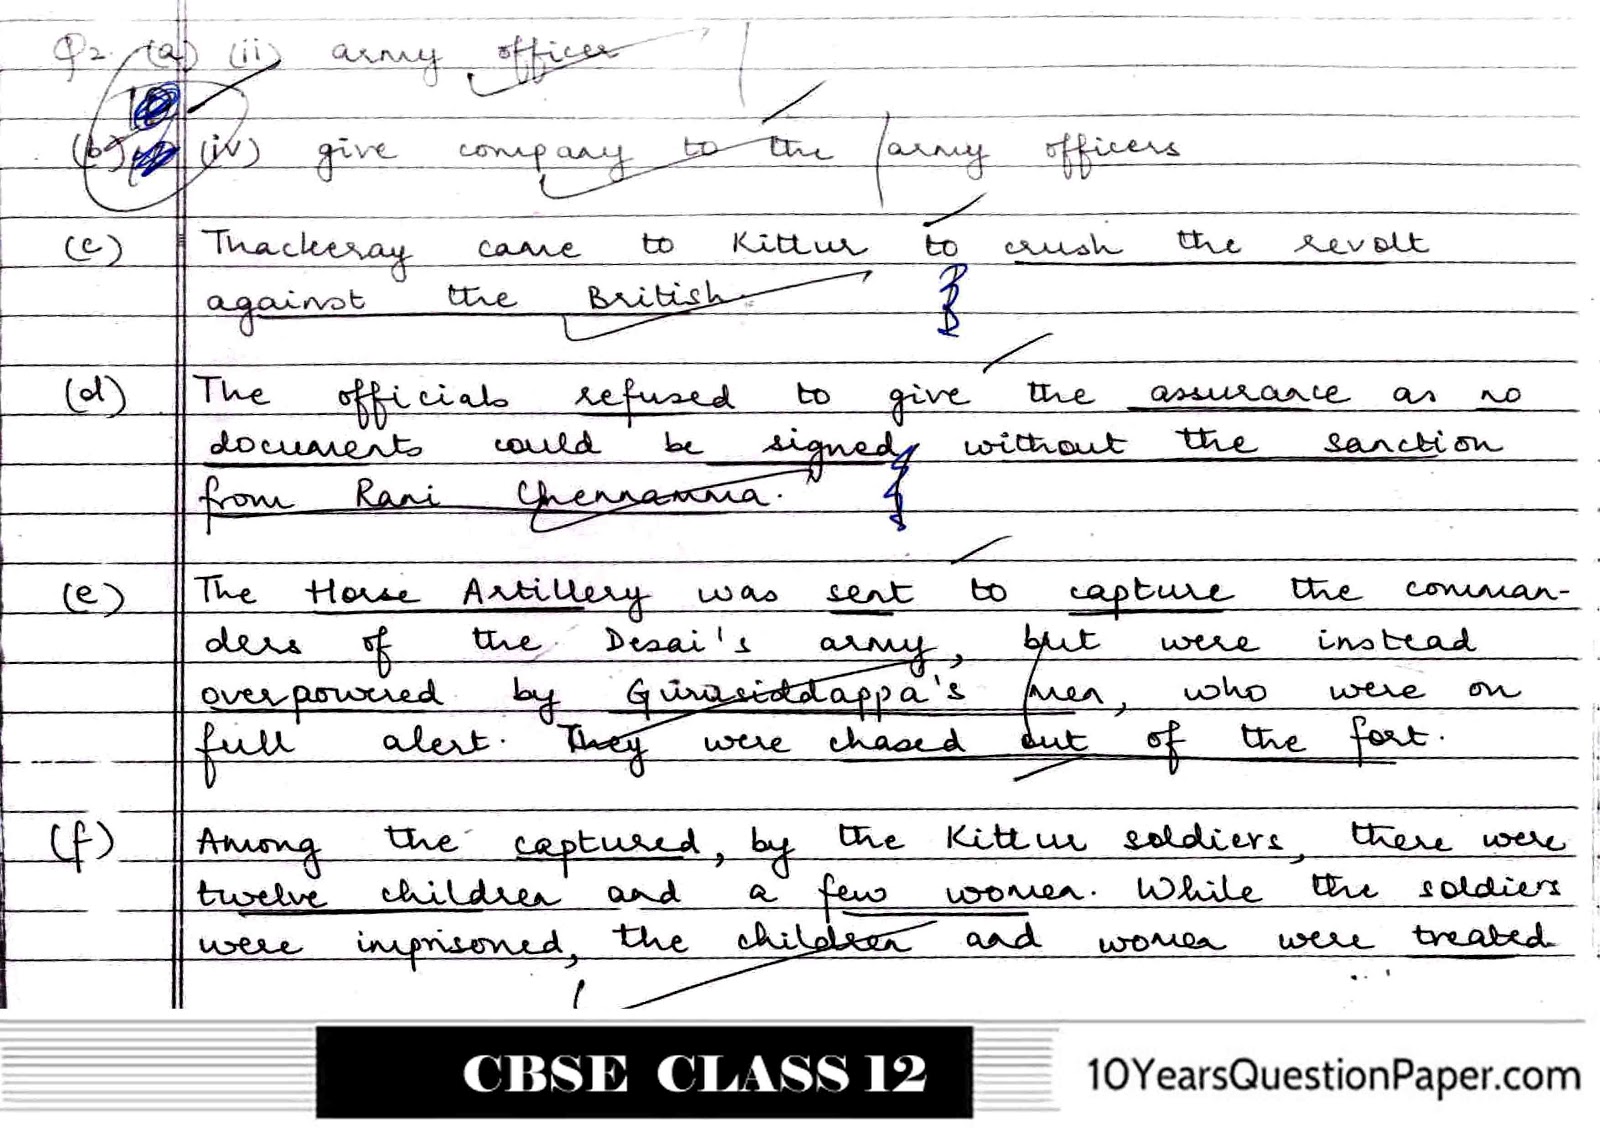 Q2. (a) (ii) army officer
(b) (iv) give company to the army officers
(c) Thackeray came to Kittur to crush the revolt
against the British.
(d) The officials refused to give the assurance as no
documents could be signed, without the sanction
from Rani Chennamma.
(e) The Horse Artillery was sent to capture the comman-
ders of the Desai's army, but were instead
overpowered by Gurusiddappa's men, who were on
full alert. They were chased out of the fort.
(f) Among the captured, by the Kittur soldiers, there were
twelve children and a few women. While the soldiers
were imprisoned, the children and women were treated
CBSE CLASS 12
10YearsQuestionPaper.com